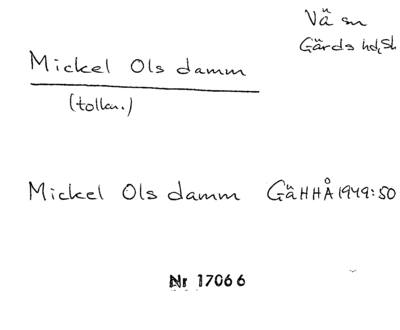 Vä sn
Gärds hd, Sk
Mickel Ols damm
(tolkn.)
Mickel Ols damm GäHHÅ 1949:50
Nr 17066